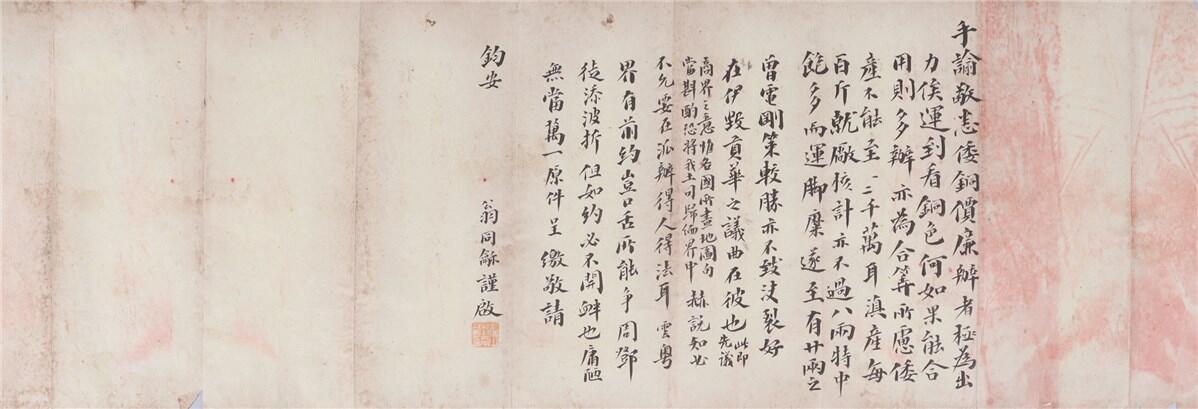 手諭敬悉倭銅價廉辦者極為出
力俟運到看銅色何如果能合
用則多辦亦為合算所慮倭
產不能至一二千萬耳滇產每
百斤就廠核計亦不過八兩特中
飽多而運腳糜遂至有廿兩之
曾電剛策較勝亦不致決裂好
在伊毀貢華之議曲在彼也此即先議
商界之意惟各國所畫地圖向
當斟酌恐將我土司歸緬界中 赫說知必
不允要在派辦得人得法耳 雲粵
界有前約豈口舌所能爭周鄧
徒添波折但如約必不開釁也庸陋
無當萬一原件呈繳敬請
鈞安
翁同龢謹啟